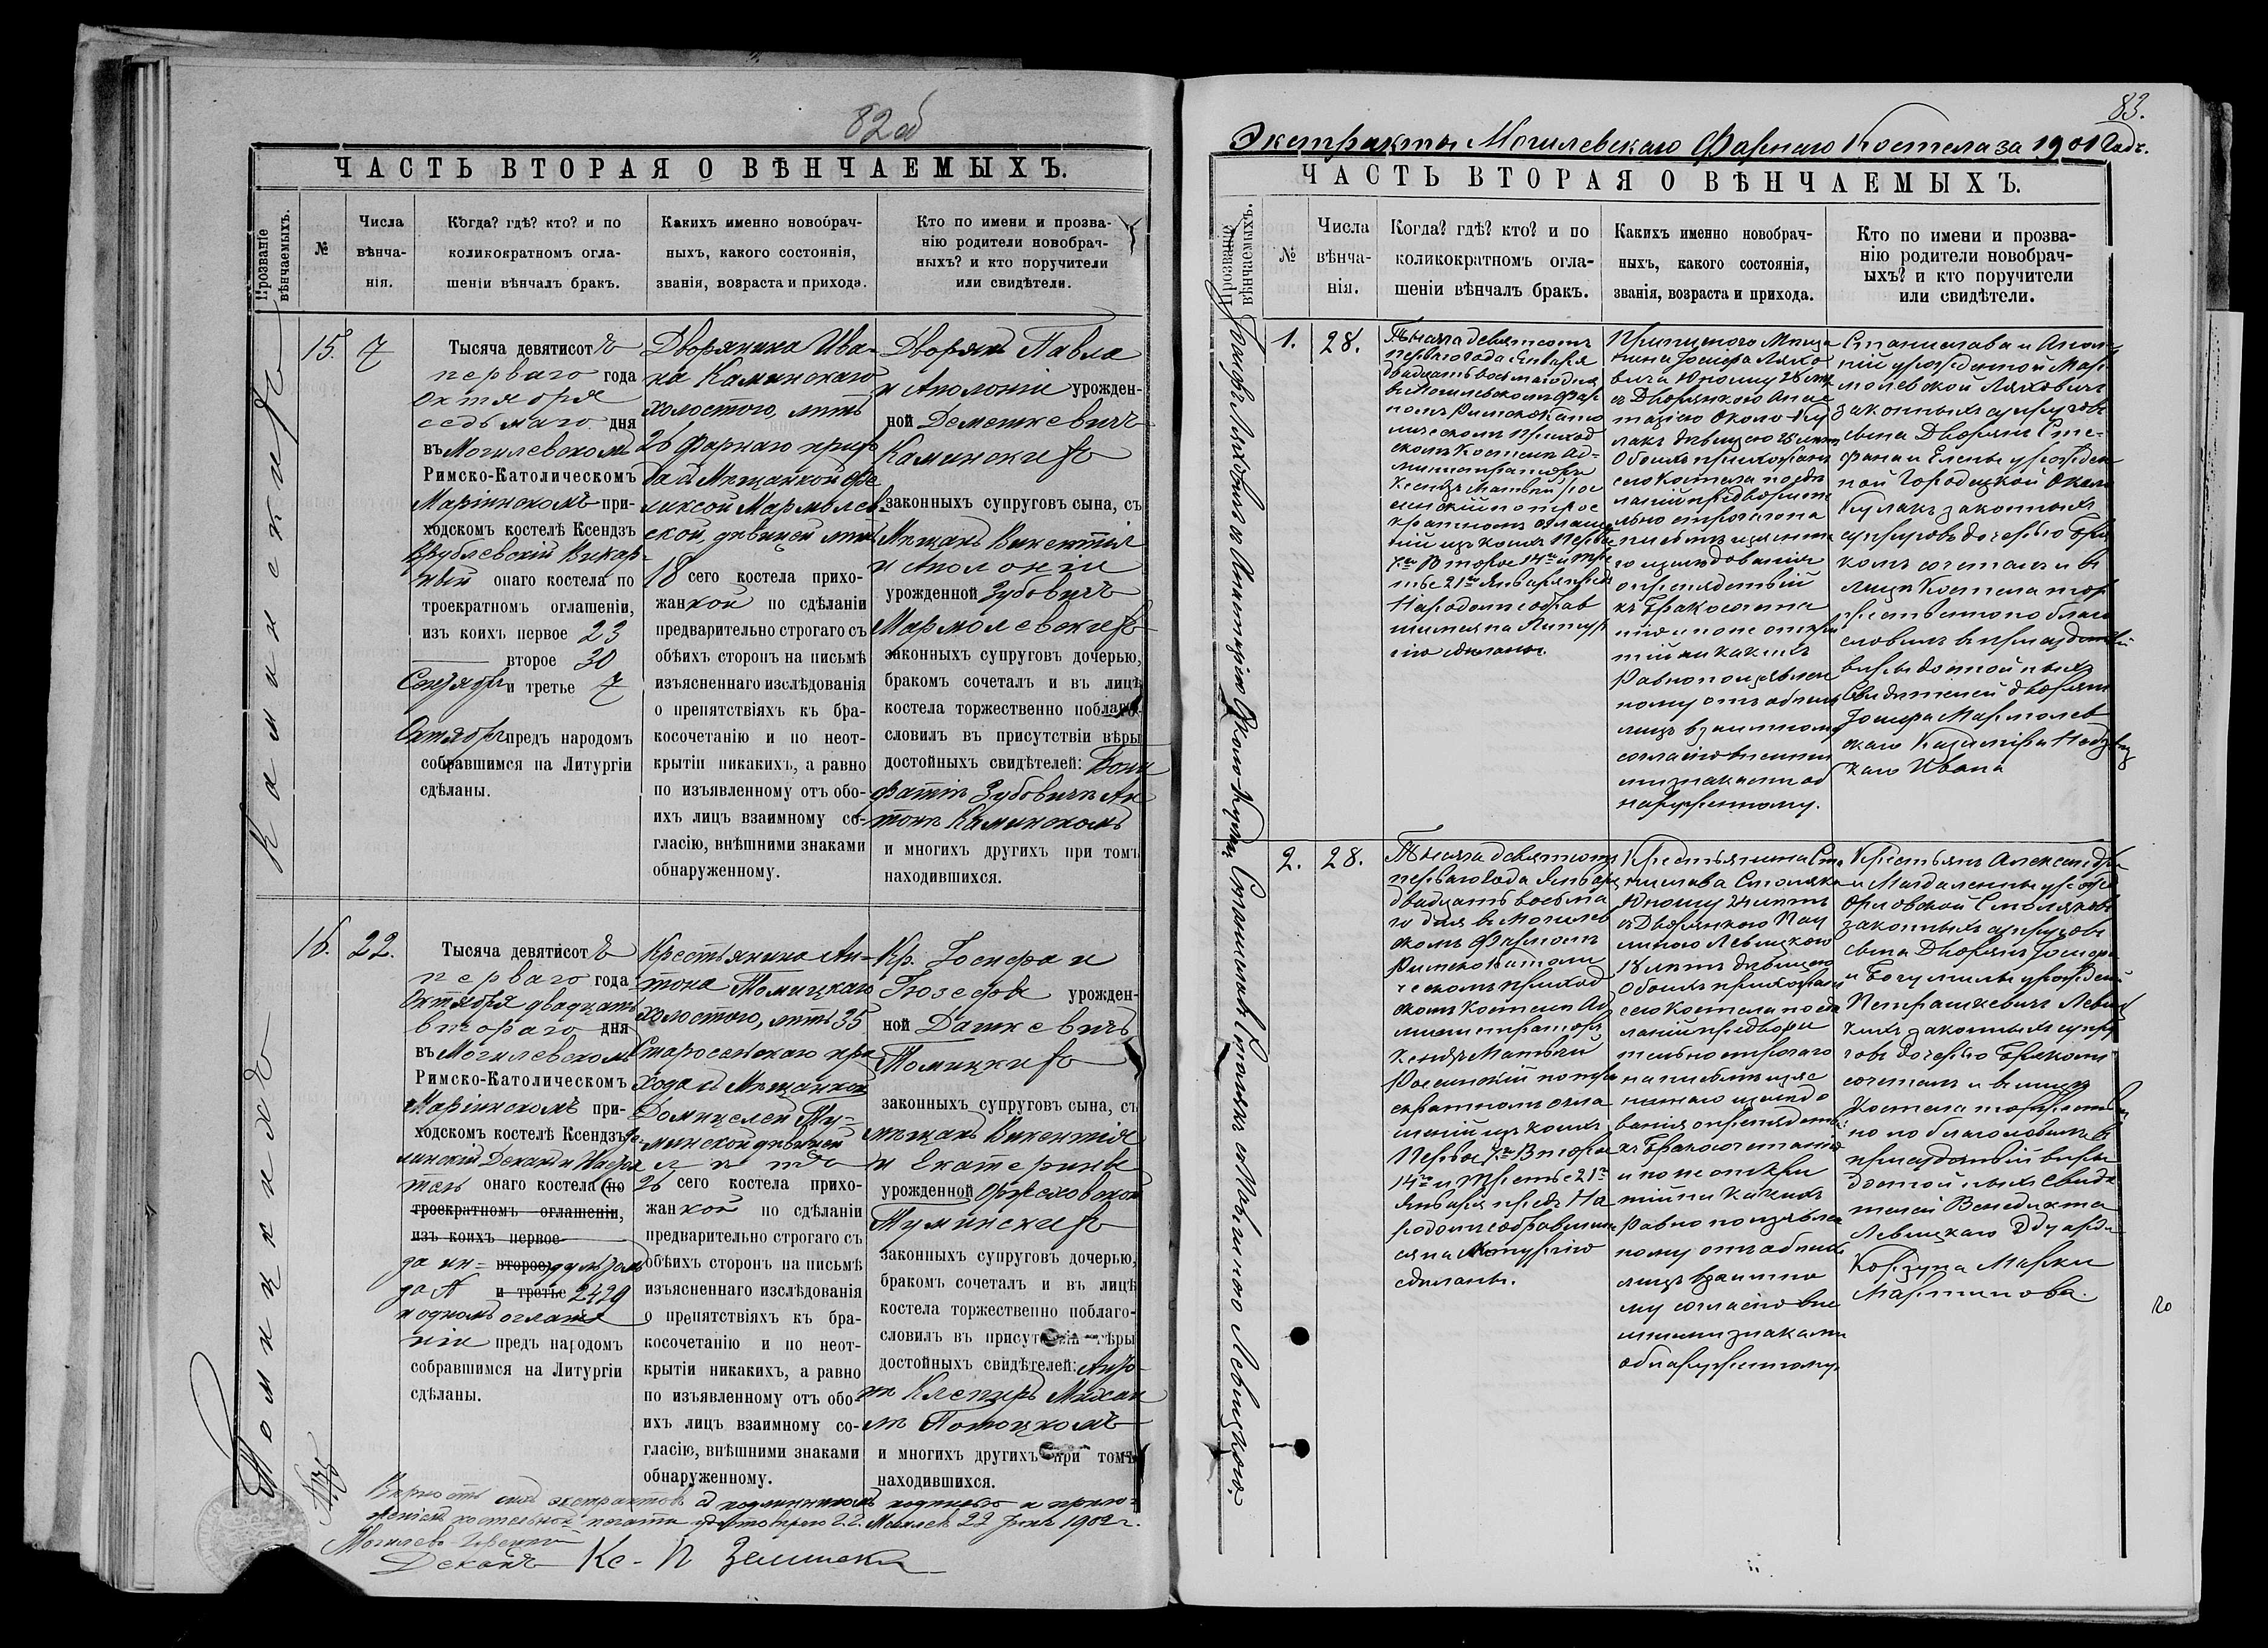 82об
ЧАСТЬ ВТОРАЯ О ВѢНЧАЕМЫХЪ.
Прозваніе вѣнчаемыхъ.
№
Числа вѣнча-
нія.
Когда? гдѣ? кто? и по
коликократномъ огла-
шеніи вѣнчалъ бракъ.
Какихъ именно новобрач-
ныхъ, какого состоянія,
званія, возраста и прихода.
Кто по имени и прозва-
нію родители новобрач-
ныхъ? и кто поручители
или свидѣтели.
15.
7
Тысяча девятисотъ
перваго года
Октября
седьмаго дня
въ Могилевскомъ
Римско-Католическомъ
Маріинскомъ при-
ходскомъ костелѣ Ксендзъ
Врублевскій Викар-
ный онаго костела по
троекратномъ оглашеніи,
изъ коихъ первое 23
второе 30
Сентября и третье 7
Октября предъ народомъ
собравшимся на Литургіи
сдѣланы.
Дворянина Ива-
на Каминскаго
холостого, лѣтъ
26 Фарнаго прихо
да съ Мѣщанкой Фе
ликсой Мармолев-
ской, дѣвицей лѣтъ
18 сего костела прихо-
жанкой по сдѣланіи
предварительно строгаго съ
обѣихъ сторонъ на письмѣ
изъясненнаго изслѣдованія
о препятствіяхъ къ бра-
косочетанію и по неот-
крытіи никакихъ, а равно
по изъявленному отъ обо-
ихъ лицъ взаимному со-
гласію, внѣшними знаками
обнаруженному.
Дворянъ Павла
и Аполоніи урожден-
ной Деметкевичъ
Каминскихъ
законныхъ супруговъ сына, съ
Мѣщанъ Викентія
и Аполоніи
урожденной Зубовичъ
Мармолевскихъ
законныхъ супруговъ дочерью,
бракомъ сочеталъ и въ лицѣ
костела торжественно поблаго-
словилъ въ присутствіи вѣры
достойныхъ свидѣтелей: Бони
фатіи Зубовичъ Ан
тонъ Каминскомъ
и многихъ другихъ при томъ
находившихся.
Каминскихъ
16.
22.
Тысяча девятисотъ
перваго года
Октября двадцать
втораго дня
въ Могилевскомъ
Римско-Католическомъ
Маріинскомъ при-
ходскомъ костелѣ Ксендзъ Зе-
линскій Деканъ и Настоя
тель онаго костела (по
троекратномъ оглашеніи,
изъ коихъ первое
второе)
за № и третье 2429
и одномъ оглаше
ніи предъ народомъ
собравшимся на Литургіи
сдѣланы.
Крестьянина Ан-
тона Томицкаго
холостого, лѣтъ 35
Старосельскаго при
хода съ Мѣщанкой
Домицелей Ту-
минской дѣвицей
лѣтъ
26 сего костела прихо-
жанкой по сдѣланіи
предварительно строгаго съ
обѣихъ сторонъ на письмѣ
изъясненнаго изслѣдованія
о препятствіяхъ къ бра-
косочетанію и по неот-
крытіи никакихъ, а равно
по изъявленному отъ обо-
ихъ лицъ взаимному со-
гласію, внѣшними знаками
обнаруженному.
Кр. Іосифа и
Іозефы урожден-
ной Дашкевичъ
Томицкихъ
законныхъ супруговъ сына, съ
мѣщанъ Викентія
и Екатерины
урожденной Оржеховской
Туминскихъ
законныхъ супруговъ дочерью,
бракомъ сочеталъ и въ лицѣ
костела торжественно поблаго-
словилъ въ присутствіи вѣры
достойныхъ свидѣтелей:
Михаи
лъ Потоцкомъ
и многихъ другихъ при томъ
находившихся.
Вѣрность сихъ экстрактовъ съ подлинникомъ подписью и прило-
женіемъ костельной печати удостовѣряю г. Могилевъ 22 1902 г.
Могилево
Деканъ Кс. П Зелинскій
83.
Экстракты Могилевскаго Фарнаго Костела за 1901 годъ.
ЧАСТЬ ВТОРАЯ О ВѢНЧАЕМЫХЪ.
Прозваніе вѣнчаемыхъ.
№
Числа вѣнча-
нія.
Когда? гдѣ? кто? и по
коликократномъ огла-
шеніи вѣнчалъ бракъ.
Какихъ именно новобрач-
ныхъ, какого состоянія,
званія, возраста и прихода.
Кто по имени и прозва-
нію родители новобрач-
ыхъ? и кто поручители
или свидѣтели.
Іосифъ Ляховичъ съ Анастазіею Около-Кулакъ
1.
28.
Тысяча девятьсотъ
перваго года Января
двадцать восьмаго дня
въ Могилевскомъ Фар
номъ Римско Като
лическомъ приход
скомъ Костелѣ Ад-
министраторъ
Ксендзъ Матвѣй Рос
синскій по трое
кратномъ оглаше
ніи изъ коихъ Первое
7го Второе 14го и Тре
тье 21го Января предъ
Народомъ собрав
шимся на Литур
гію сдѣланы.
Іосифа Ляхо
вича Юношу 28 лѣтъ
съ Дворянкою Анас
тазіею Около-Ку
лакъ дѣвицею 25 лѣтъ
Обоихъ прихожанъ
сего Костела по сдѣ
ланіи предварите
льно строгаго на
письмѣ изъяснен
го изслѣдованія
о препятствій
къ бракосочета
нію и по не откры
тіи никакихъ
Равно по изъявлен
ному отъ обоихъ
лицъ взаимному
согласію внѣшни
ми знаками об
наруженному.
Станислава и Апол-
ніи урожденной Мар
молевской Ляховичъ
законныхъ супруговъ
сына Дворянъ Сте-
фана и Елены урожден
ной Городецкой Около
Кулакъ законныхъ
супруговъ дочерью бра
комъ сочеталъ и въ
лицѣ Костела тор
жественно поблаго
словилъ въ присутствіи
вѣры достойныхъ
Свидѣтелей дворянъ
Іосифа Мармолев
скаго Казиміра
каго Ивана
Станиславъ Столяръ съ Павлиною Левицкою.
2.
28.
Тысяча девятьсотъ
перваго года Января
двадцать восьма
го дня въ Могилев
скомъ Фарномъ
Римско Католи
ческомъ приход
скомъ Костелѣ Ад
министраторъ
Ксендзъ Матвѣй
Россинскій по трое
кратномъ огла
шеніи изъ коихъ
Первое 7го Второе
14го и Третье 21го
Января предъ На
родомъ собравшим
ся на Литургію
сдѣланы.
Крестьянина Ста
нислава Столяра
Юношу 24 лѣтъ
съ Дворянкою Пав
линою Левицкою
18 лѣтъ дѣвицею
Обоихъ прихожанъ
сего Костела по сдѣ
ланіи предвари
тельно строгаго
на письмѣ изъяс
неннаго изслѣдо
ванія о препятствій
къ бракосочетанію
и по не откры
тіи никакихъ
Равно по изъявлен
ному отъ обоихъ
лицъ взаимно
му согласію внѣ
шними знаками
обнаруженному
Крестьянъ Александра
и Магдалены урожд
Орловской Столяровъ
законныхъ супруговъ
сына Дворянъ Іосифа
и Богумилы урожден
Петрашкевичъ Левиц
кихъ законныхъ супру
говъ дочерью бракомъ
сочеталъ и въ лицѣ
Костела торжествен
но поблагословилъ въ
присутствіи вѣры
достойныхъ свидѣ
телей Венедикта
Левицкаго Эдуарда
Корзуна Марки
Мартинова.